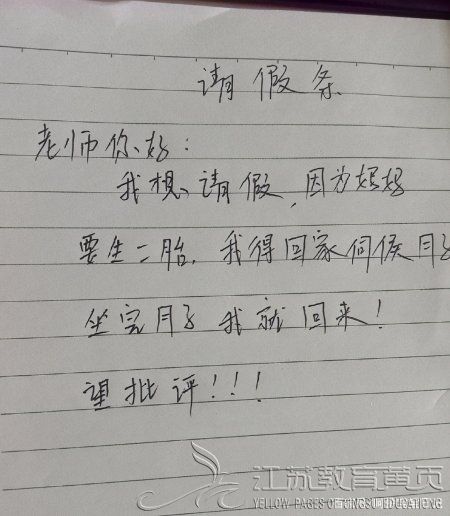 请假条
老师你好:
我想请假,因为妈妈
要生二胎,我得回家伺候月子
坐完月子我就回来!
望批评!!!
江苏教育黄页
YELLOW PAGES OF